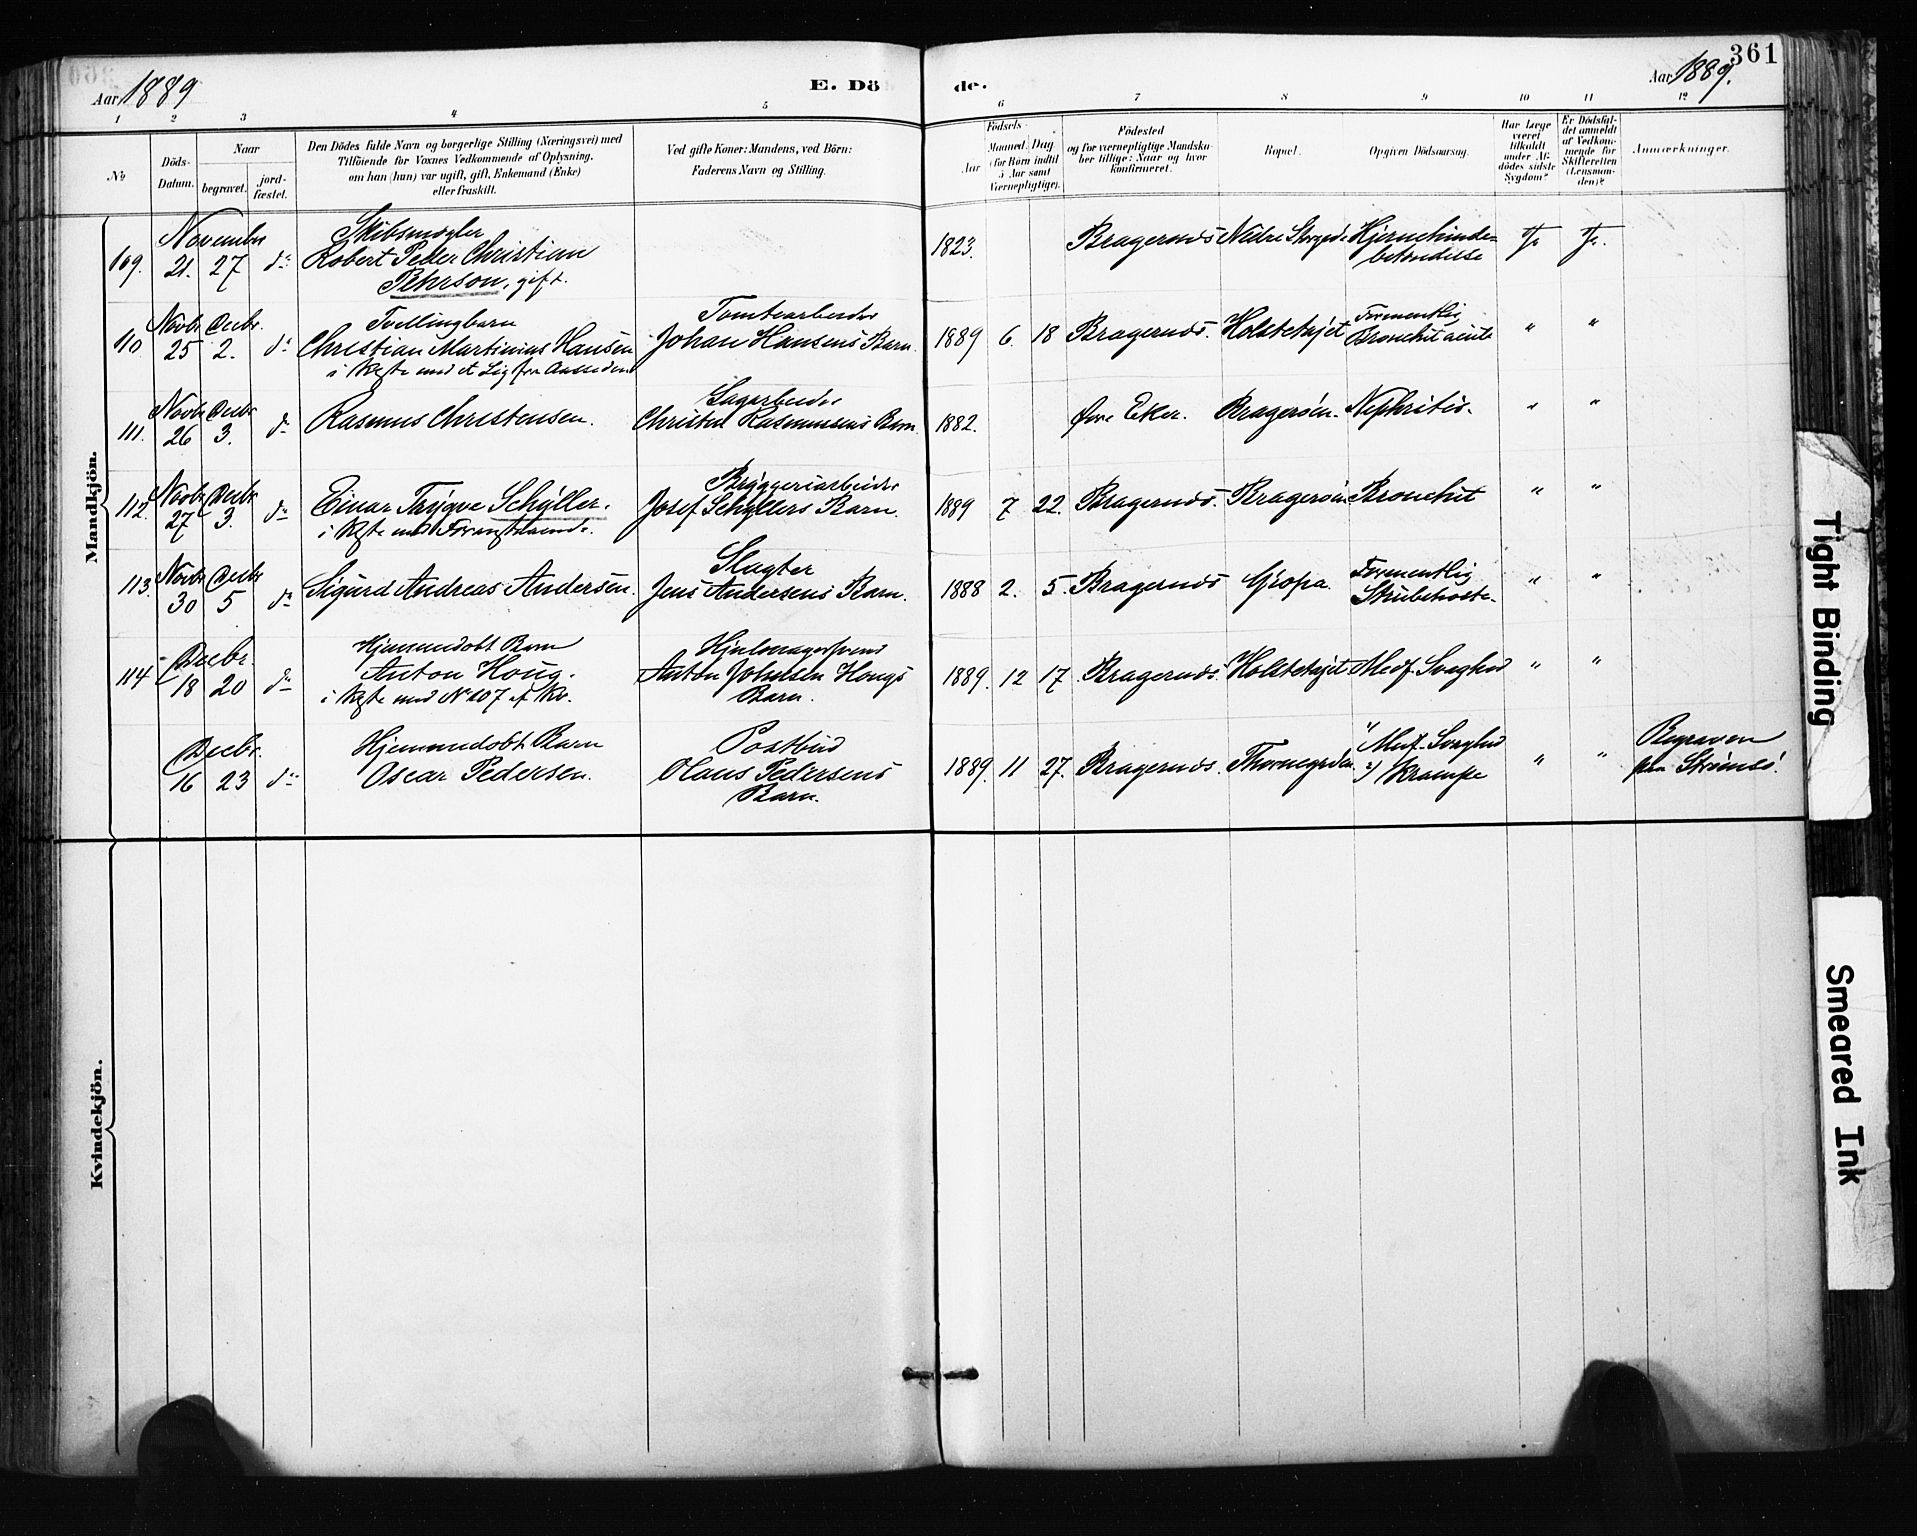 361
Aar 1889
E. Dö
de.
Aar 1889.
1 2 3 4 5 6 7 8 9 10 11 12
No
Döds-
Datum.
Naar
begravet.
jord-
fæstet.
Den Dödes fulde Navn og borgerlige Stilling (Næringsvei) med
Tilföiende for Voxnes Vedkommende af Oplysning,
om han (hun) var ugift, gift, Enkemand (Enke)
eller fraskilt.
Ved gifte Koner: Mandens, ved Börn:
Faderens Navn og Stilling.
Födsels
Aar
Maaned. Dag
(for Börn indtil
5 Aar samt
Værnepligtige).
Födested
og for værnepligtige Mandska-
ber tillige: Naar og hvor
konfirmeret.
Bopæl.
Opgiven Dödsaarsag.
Har Læge
været
tilkaldt
under Af-
dödes sidste
Sygdom?
Er Dödsfal-
det anmeldt
af Vedkom-
mende for
Skifteretten
(Lensman-
den)?
Anmærkninger.
Mandkjön.
Skibsmægler
109. November 21. 27 do Robert Peder Christian 1823. Bragernæs Nedre Storgade Hjernehinde- Ja Ja.
Pehrson, gift. betændelse
Tvillingbarn Tomtearbeider Formentlig
110 Novbr 25 Decbr. 2. do Christian Martinius Hansen Johan Hansens Barn. 1889 6. 18 Bragernæs. Holstehøjet Bronchit acute " "
i Kiste med et Lig fra
Sagarbeider
111. Novbr 26 Decbr 3. do Rasmus Christensen. Christen Rasmussens Barn. 1882. Øvre Eker. Bragerøen. Nephritis. " "
Bryggeriarbeider
112. Novbr 27 Decbr 3. do Einar Trygve Schyller. Josef Schyllers Barn. 1889 7 22. Bragernæs. Bragerøen Bronchit " "
i Kiste med Foranstaaende.
Slagter Formentlig
113. Novbr 30 Decbr 5 do Sigurd Andreas Andersen. Jens Andersens Barn. 1888 2. 5. Bragernæs Gropa. Strubehoste. " "
Hjemmedøbt Barn Hjulmagersvend
114 Decbr. 18 20 do Anton Houg. Anton Johnsen Hougs 1889. 12 17. Bragernæs. Holstehøjet Medf. Svaghed " "
i Kiste med No 107 af Kv. Barn.
Hjemmedøbt Barn Postbud 1) Medf. Svaghed Begraven
Decbr. 16 23 do Oscar Pedersen. Olaus Pedersens 1889. 11 27. Bragernæs. Thornegaden. 2) Krampe " " paa Strømsø.
Barn.
Kvindekjön.
Tight Binding
Smeared Ink